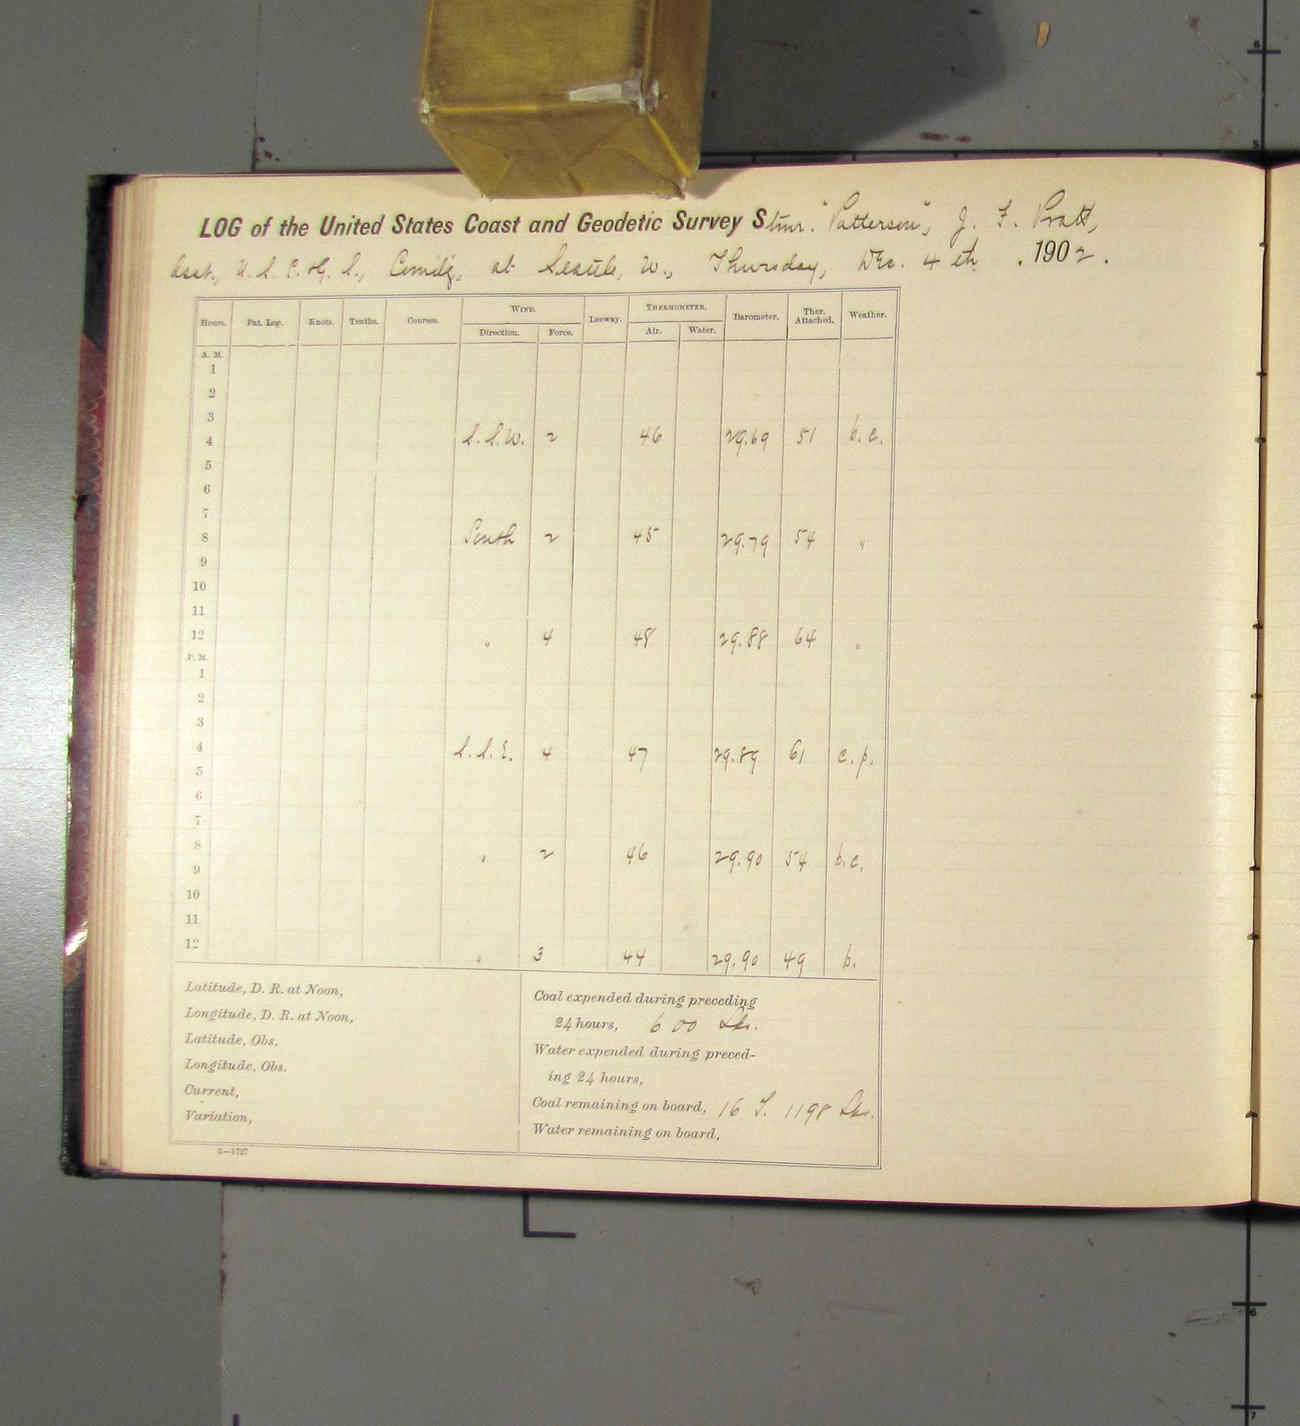 LOG of the United States Coast and Geodetic Survey Stmr. "Patterson", J. F. Pratt,
Asst., U. S. C. & G. S., Comd'g, at Seattle, W., Thursday, Dec. 4th, 1902.
Hours. Pat. Log. Knots. Tenths. Courses. WIND. Leeway. THERMOMETER. Barometer. Ther. Attached. Weather.
Direction. Force. Air. Water.
A. M.
1
2
3
4 S.S.W. 2 46 29.69 51 b.c.
5
6
7
8 South 2 45 29.79 54 "
9
10
11
12 " 4 48 29.88 64 "
P. M.
1
2
3
4 S.S.E. 4 47 29.89 61 c.p.
5
6
7
8 " 2 46 29.90 54 b.c.
9
10
11
12 " 3 44 29.90 49 b.
Latitude, D. R. at Noon,
Longitude, D. R. at Noon,
Latitude, Obs.
Longitude, Obs.
Current,
Variation,
Coal expended during preceding
24 hours, 600 Lbs.
Water expended during preced-
ing 24 hours,
Coal remaining on board, 16 T. 1198 Lbs.
Water remaining on board,
2—1727
6
5
6
7